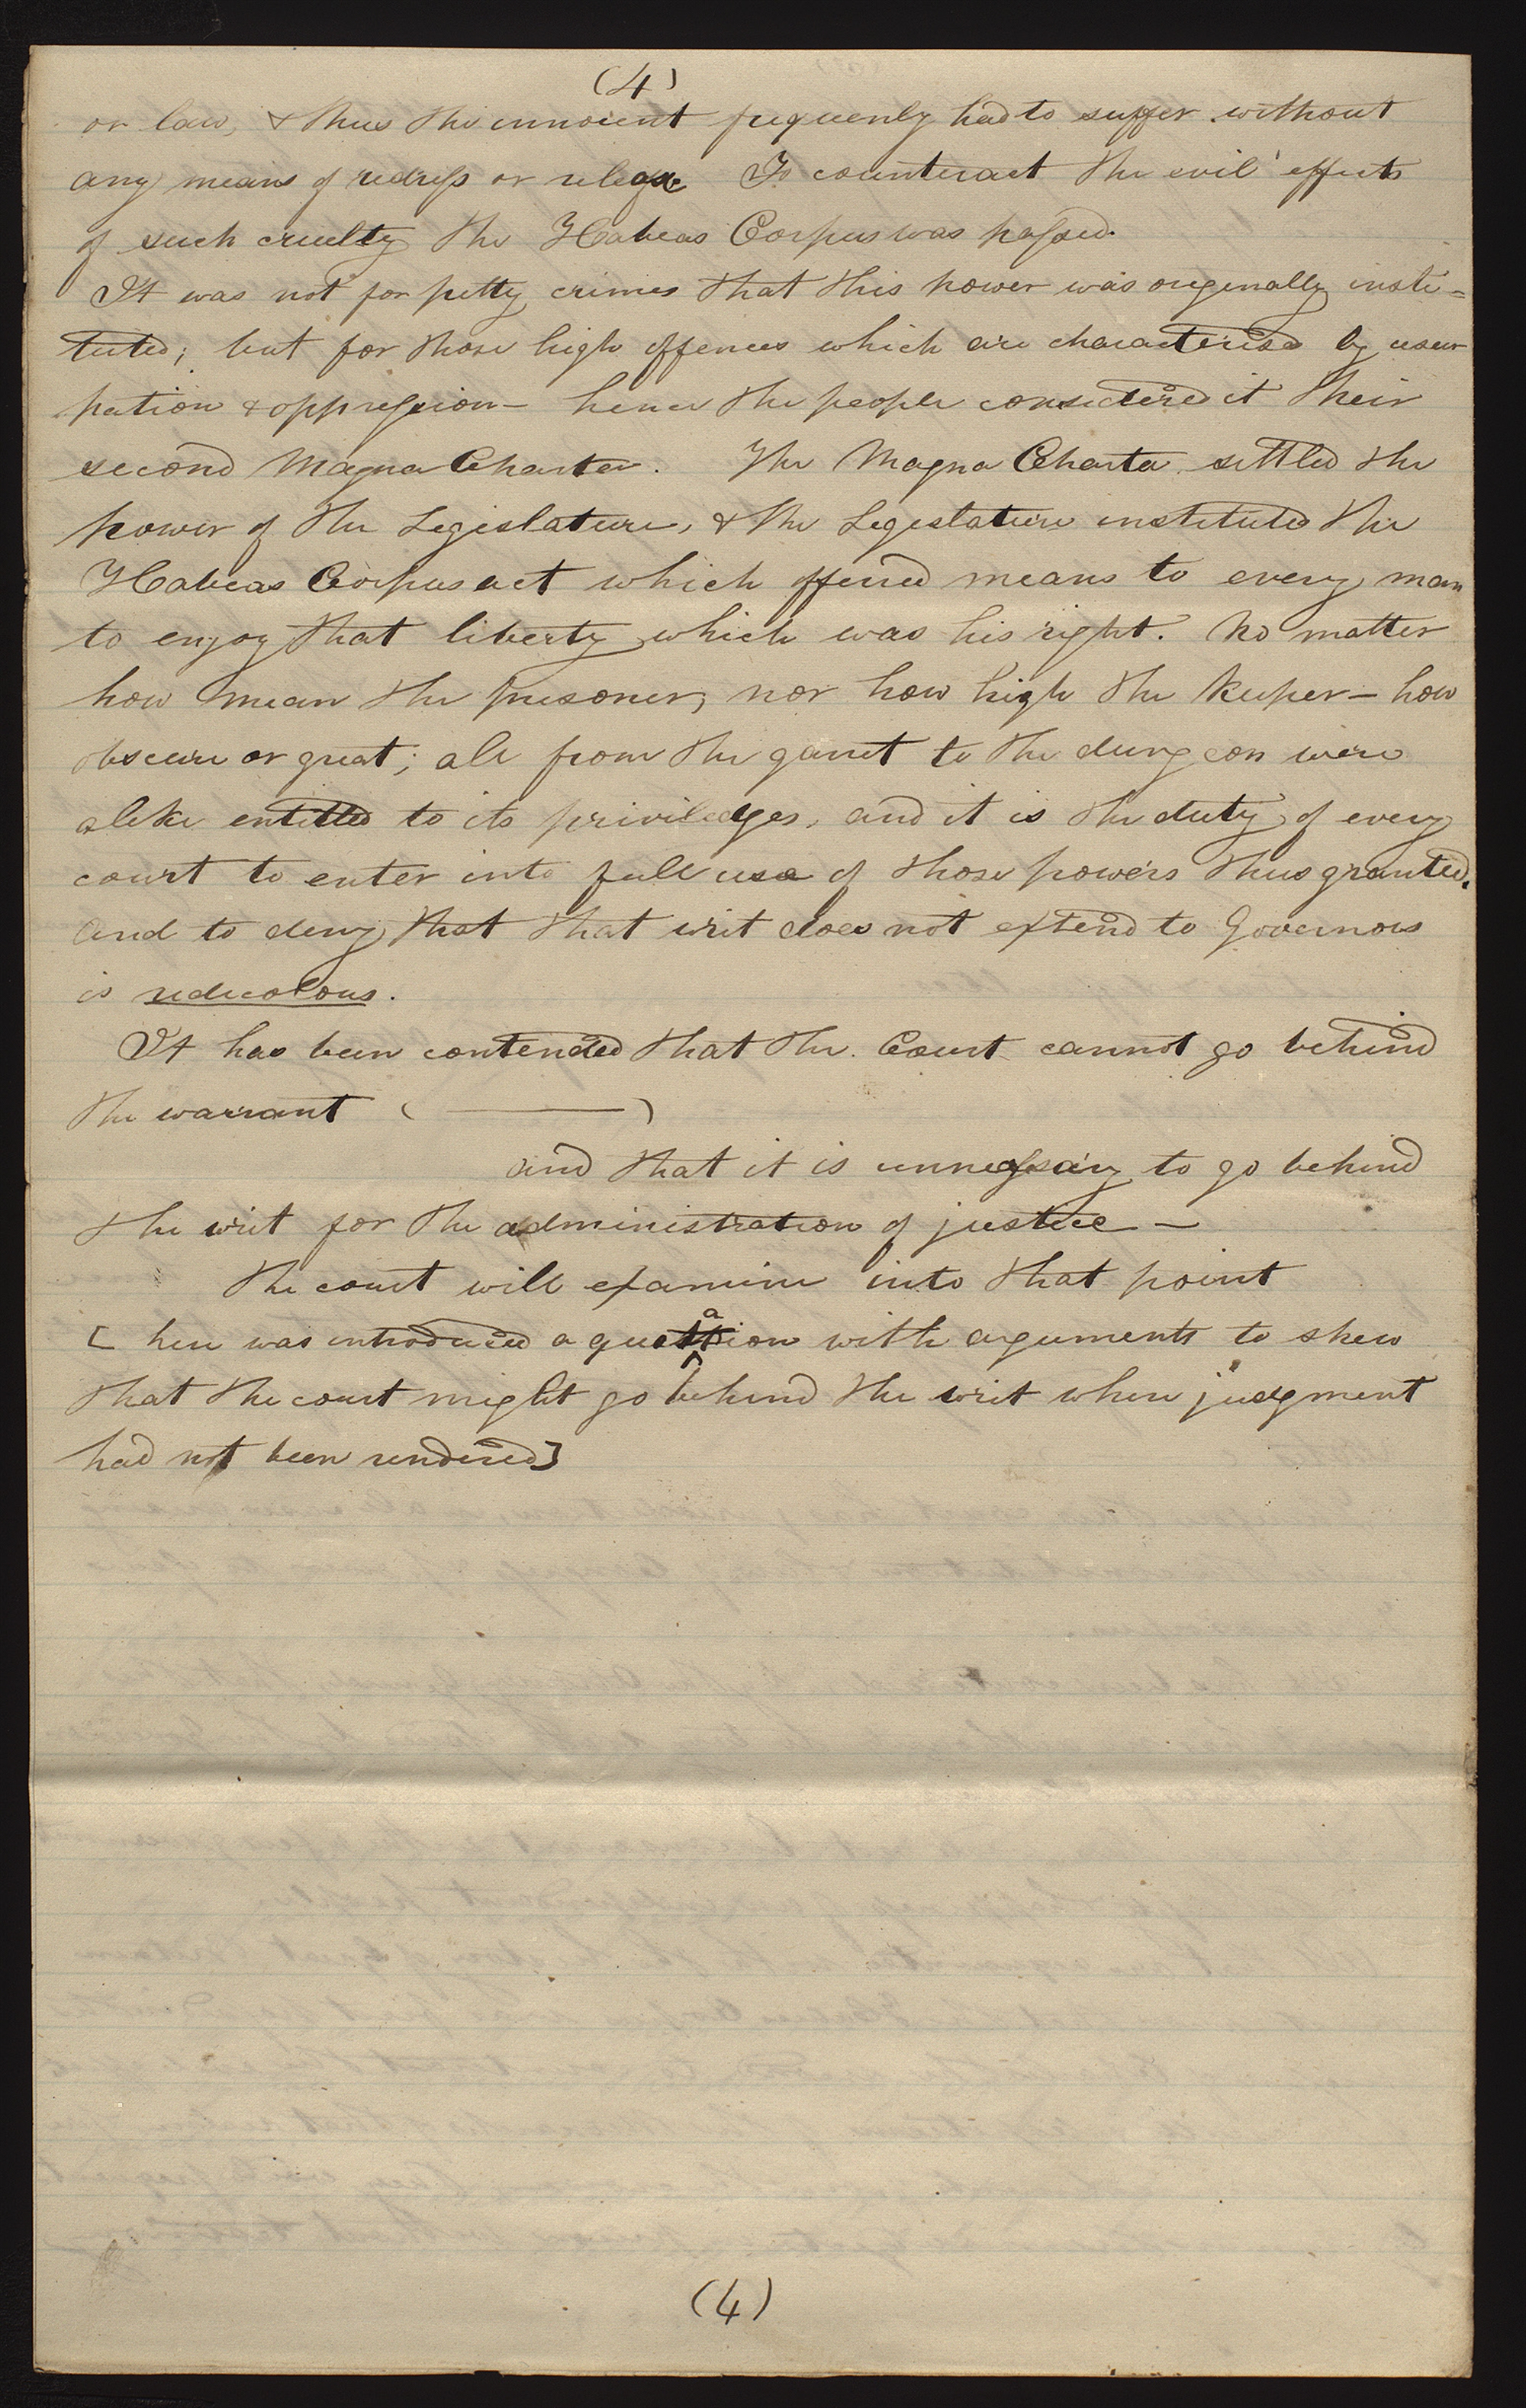 (4)
or law, & thus the innocent frequenly had to suffer without
any means of redress or release To counteract the evil effects
of such cruelty the Habeas Corpus was passed.
It was not for petty crimes that this power was originally insti=
tuted; but for those high offences which are characterised by usur
pation & oppression— hence the people considered it their
second Magna Charter. The Magna Charta settled the
power of the Legislature, & the Legislature instituted the
Habeas Corpus act which offered means to every man
to enjoy that liberty which was his right. No matter
how mean the prisoner, nor how high the keeper— how
obscure or great; all from the garret to the dungeon were
alike entitled to its priviledges, and it is the duty of every
court to enter into full use of those powers thus granted.
And to deny that that writ does not extend to Governors
is redicolous.
It has been contended that the Court cannot go behind
the warrant (———)
and that it is unnessary to go behind
the writ for the administration of justice—
the court will examine into that point
[ here was introduced a quotation with arguments to shew
that the court might go behind the writ where judgment
had not been rendered]
(4)